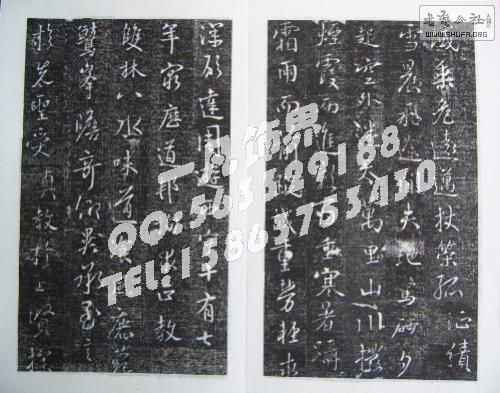 乘危遠邁杖策孤征積
雪晨飛途間失地驚砂夕
起空外迷天萬里山川撥
煙霞而進影百重寒暑躡
霜雨而前蹤誠重勞輕求
深願達周遊西宇十有七
年窮歷道邦詢求正教
雙林八水味道飡風鹿菀
鷲峯瞻奇仰異承至言
於先聖受真教於上賢探
一凡饰界
QQ:563529188
TEL:15863753430
书艺公社
WWW.SHUFA.ORG